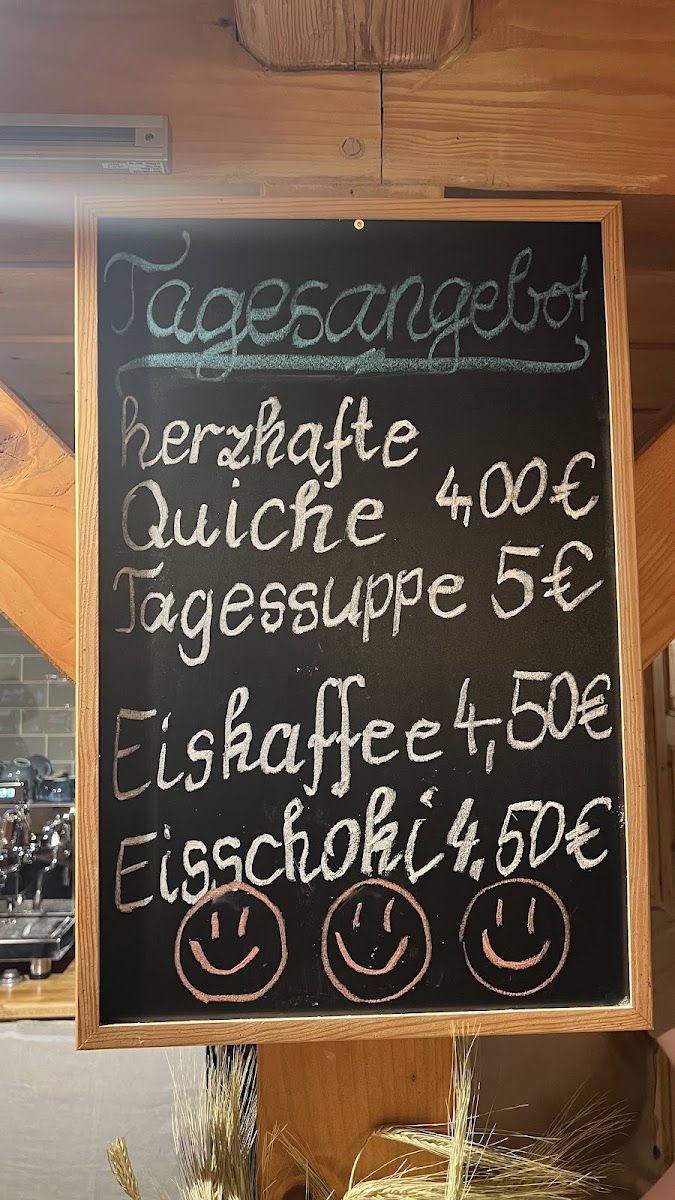 Tagesangebot
herzhafte
Quiche 4,00€
Tagessuppe 5€
Eiskaffee 4,50€
Eisschoki 4,50€